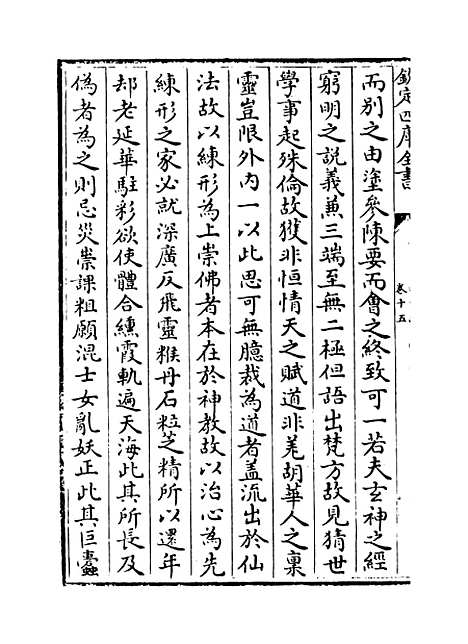 欽定四庫全書
卷十五
而別之由塗參陳要而會之終致可一若夫玄神之經
窮明之説義兼三端至無二極但語出梵方故見猜世
學事起殊倫故獲非恒情天之賦道非羌胡華人之稟
靈豈限外内一以此思可無臆裁為道者盖流出於仙
法故以練形為上崇佛者本在於神教故以治心為先
練形之家必就深廣反飛靈糇丹石粒芝精所以還年
却老延華駐彩欲使體合纁霞軌遍天海此其所長及
偽者為之則忌災祟課粗願混士女亂妖正此其巨蠹